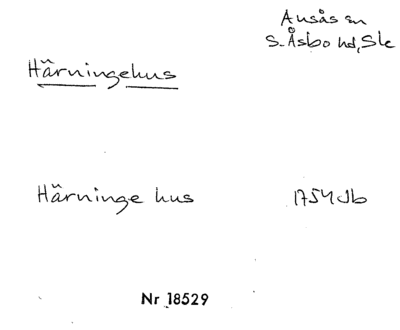 Ausås sn
S. Åsbo hd, Ske
Härningehus
Härninge hus 1754 Jb
Nr 18529